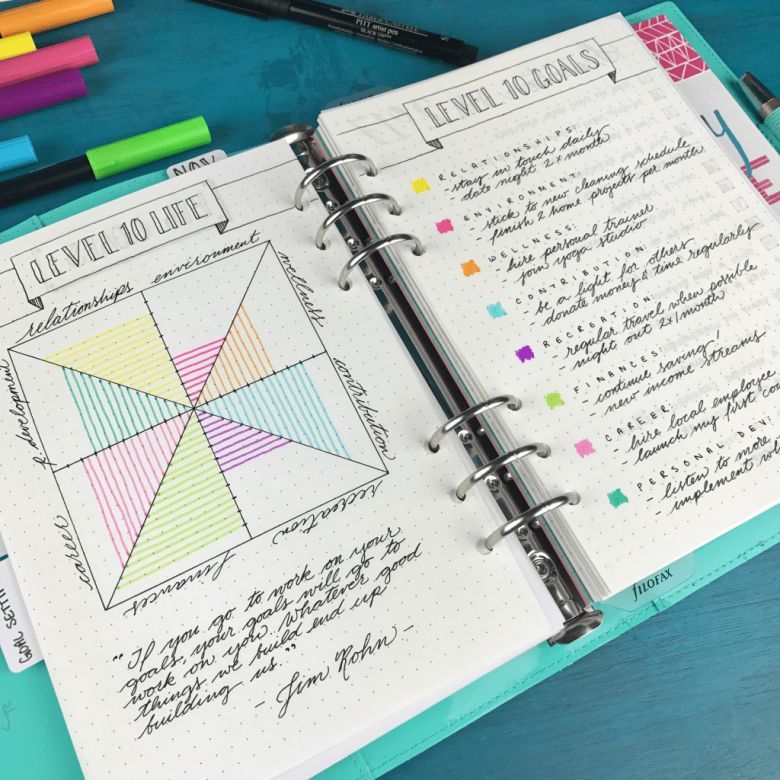 FABER-CASTELL
PITT artist pen
BLACK
S
NOV
LEVEL 10 LIFE
relationships
environment
wellness
contribution
recreation
finances
career
p. development
"If you go to work on your
goals, your goals will go to
work on you. Whatever good
things we build end up
building us."
- Jim Rohn -
GOAL SETTI
LEVEL 10 GOALS
RELATIONSHIPS:
- stay in touch daily
- date night 2x/month
ENVIRONMENT:
- stick to new cleaning schedule
- finish 2 home projects per month
WELLNESS:
- hire personal trainer
- join yoga studio
CONTRIBUTION:
- be a light for others
- donate money & time regularly
RECREATION:
- regular travel when possible
- night out 2x/month
FINANCES:
- continue saving!
- new income streams
CAREER:
- hire local employee
- launch my first co
PERSONAL DEV:
- listen to more
- implement wh
FILOFAX